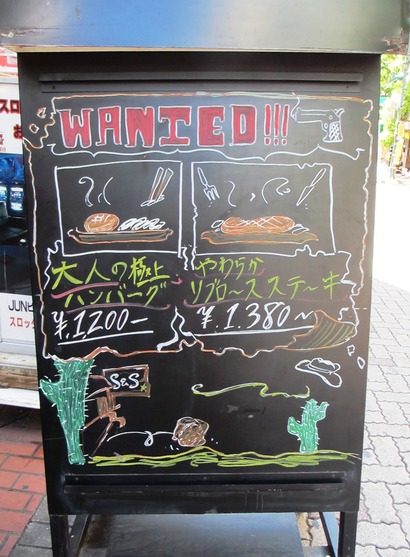 WANTED!!!
大人の極上
ハンバーグ
¥.1200-
やわらか
リブロースステーキ
¥.1.380~
S&S
JUN
スロッ
スロ
お